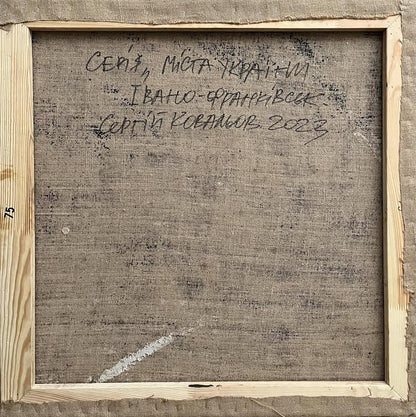 Серія „Міста України
Івано-Франківськ
Сергій Ковальов 2023
75